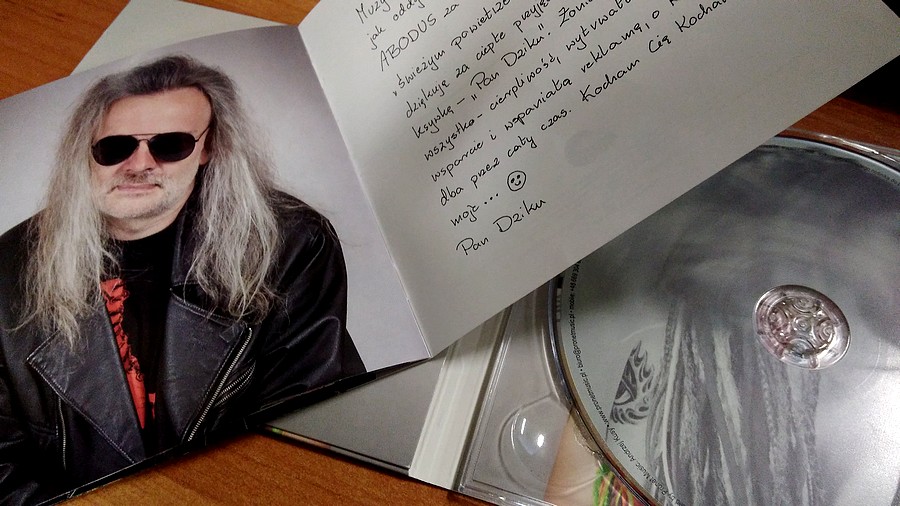 Muzy
jak oddy
ABODUS za
świeżym powietrze
dziękuję za ciepłe przyję
ksywkę - "Pan Dziku". Żoni
wszystko - cierpliwość, wytrwało
wsparcie i wspaniałą reklamą, o k
dba przez cały czas. Kocham Cię Kocham
moja... ☺
Pan Dziku